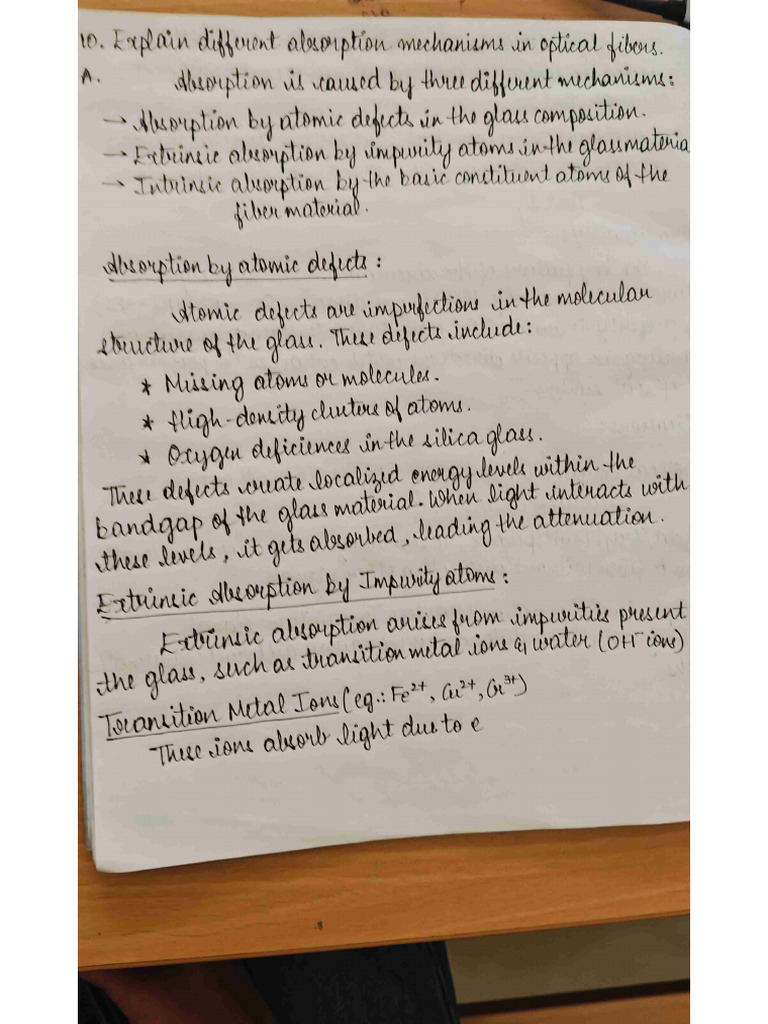 10. Explain different absorption mechanisms in optical fibers.
A. Absorption is caused by three different mechanisms:
→ Absorption by atomic defects in the glass composition.
→ Extrinsic absorption by impurity atoms in the glass materia
→ Intrinsic absorption by the basic constituent atoms of the
fiber material.
Absorption by atomic defects:
Atomic defects are imperfections in the molecular
structure of the glass. These defects include:
* Missing atoms or molecules.
* High-density clusters of atoms.
* Oxygen deficiences in the silica glass.
These defects create localized energy levels within the
bandgap of the glass material. When light interacts with
these levels, it gets absorbed, leading the attenuation.
Extrinsic Absorption by Impurity atoms:
Extrinsic absorption arises from impurities present
the glass, such as transition metal ions & water (OH⁻ ions)
Transition Metal Ions (eg.: Fe²⁺, Cu²⁺, Cr³⁺)
These ions absorb light due to e